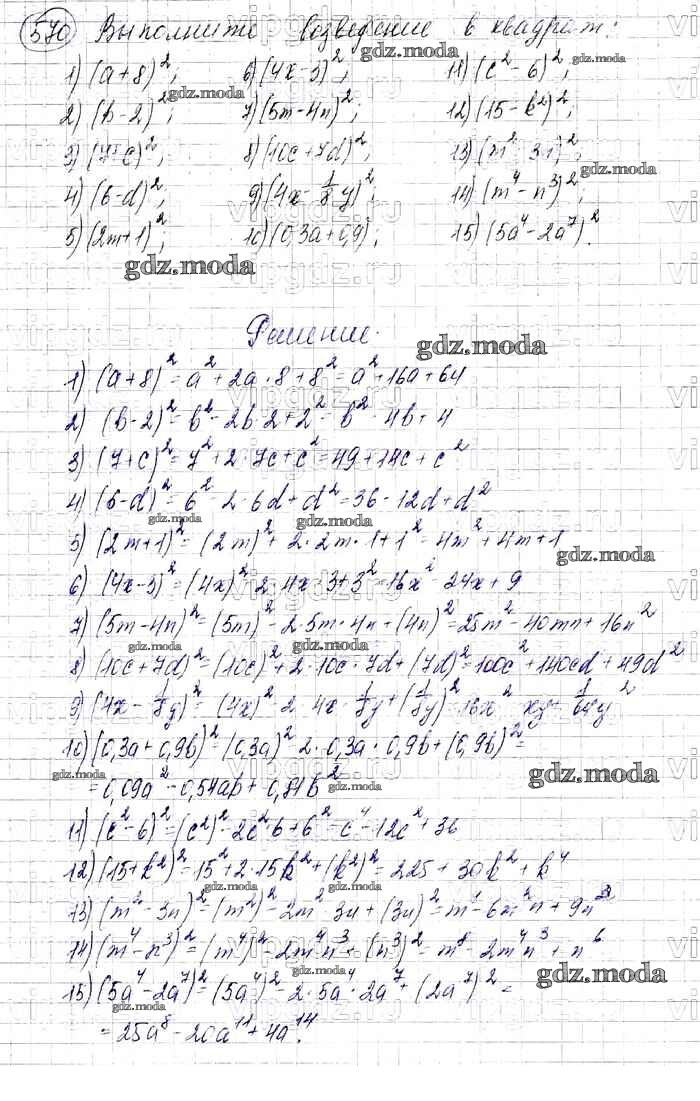 570 Выполните возведение в квадрат:
1) (a+8)²; 6) (4x-3)²; 11) (c²-6)²;
2) (b-2)²; 7) (5m-4n)²; 12) (15-k²)²;
3) (7+c)²; 8) (10c+7d)²; 13) (m²-3n)²;
4) (6-d)²; 9) (4x-1/8y)²; 14) (m⁴-n³)²;
5) (2m+1)²; 10) (0,3a+0,9)²; 15) (5a⁴-2a⁷)².
gdz.moda
Решение.
1) (a+8)²=a²+2a·8+8²=a²+16a+64
2) (b-2)²=b²-2b·2+2²=b²-4b+4
3) (7+c)²=7²+2·7c+c²=49+14c+c²
4) (6-d)²=6²-2·6d+d²=36-12d+d²
5) (2m+1)²=(2m)²+2·2m·1+1²=4m²+4m+1
6) (4x-3)²=(4x)²-2·4x·3+3²=16x²-24x+9
7) (5m-4n)²=(5m)²-2·5m·4n+(4n)²=25m²-40mn+16n²
8) (10c+7d)²=(10c)²+2·10c·7d+(7d)²=100c²+140cd+49d²
9) (4x-1/8y)²=(4x)²-2·4x·1/8y+(1/8y)²=16x²-xy+1/64y²
10) (0,3a+0,9b)²=(0,3a)²-2·0,3a·0,9b+(0,9b)²=
=0,09a²-0,54ab+0,81b²
11) (c²-6)²=(c²)²-2c²·6+6²=c⁴-12c²+36
12) (15+k²)²=15²+2·15k²+(k²)²=225+30k²+k⁴
13) (m²-3n)²=(m²)²-2m²·3n+(3n)²=m⁴-6m²n+9n²
14) (m⁴-n³)²=(m⁴)²-2m⁴n³+(n³)²=m⁸-2m⁴n³+n⁶
15) (5a⁴-2a⁷)²=(5a⁴)²-2·5a⁴·2a⁷+(2a⁷)²=
=25a⁸-20a¹¹+4a¹⁴.